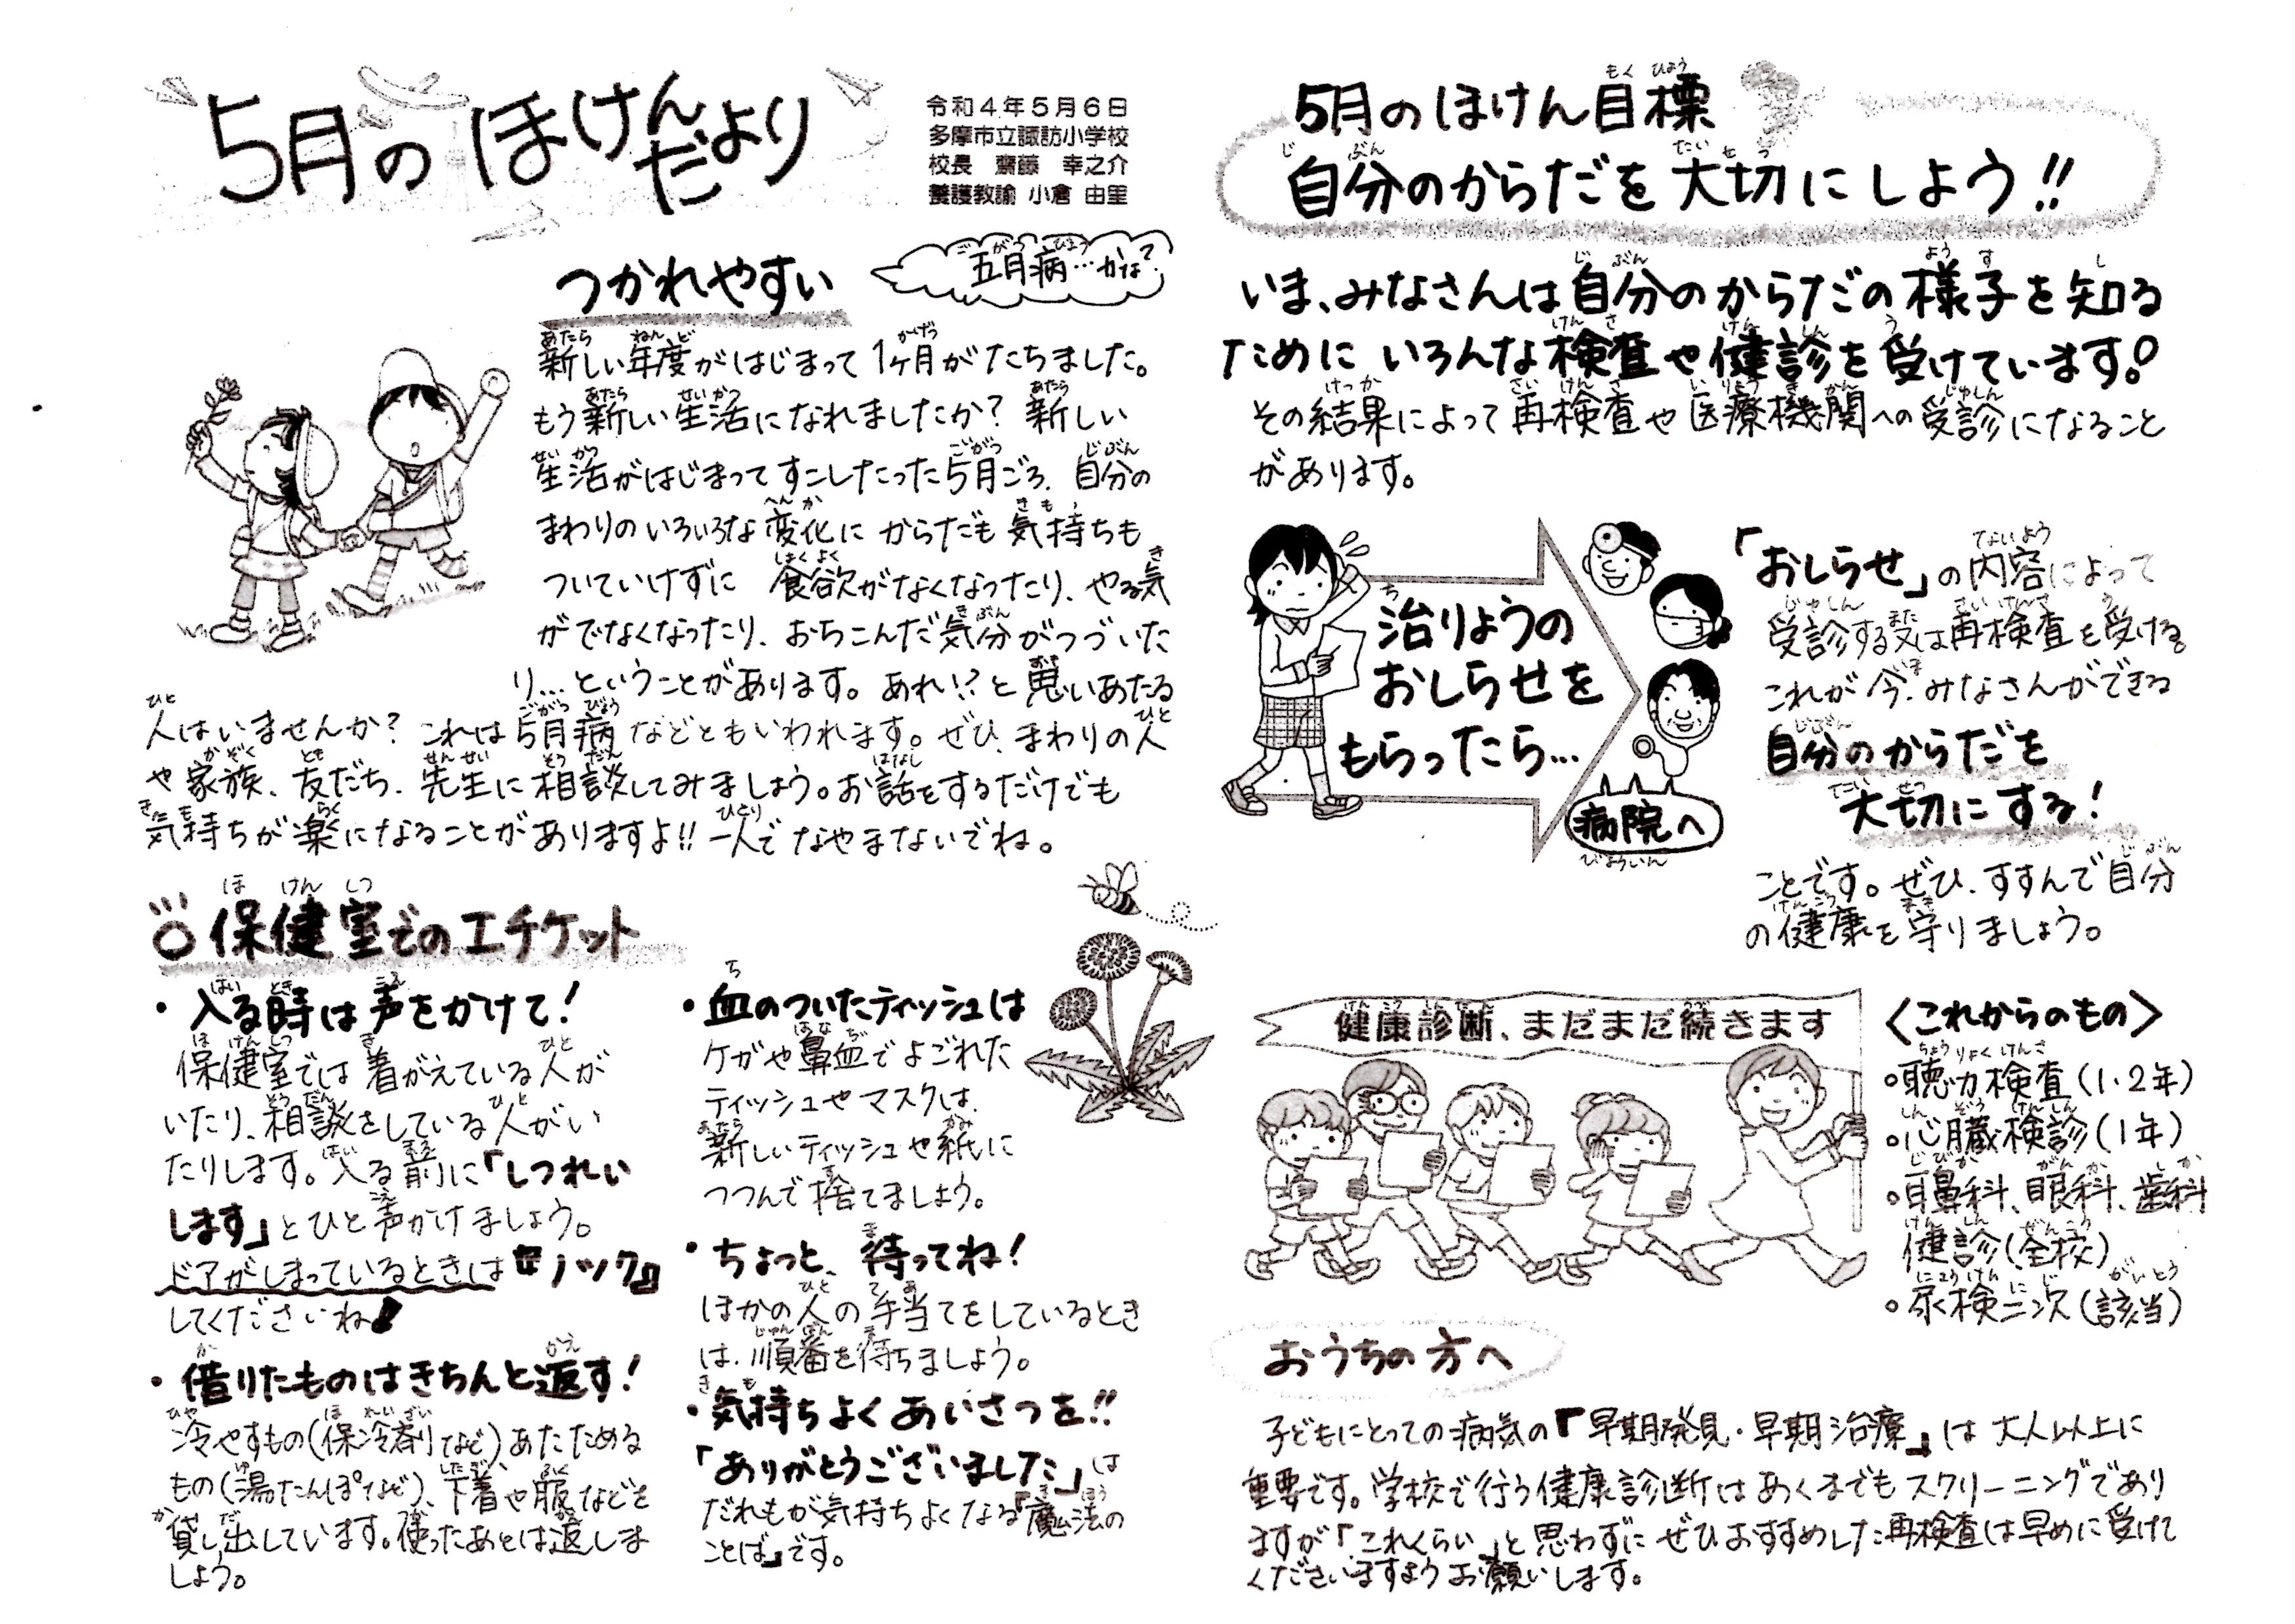 5月のほけんだより
令和4年5月6日
多摩市立諏訪小学校
校長 齋藤 幸之介
養護教諭 小倉 由里
つかれやすい
五月病…かな?
新しい年度がはじまって1ヶ月がたちました。
もう新しい生活になれましたか? 新しい
生活がはじまってすこしたった5月ごろ、自分の
まわりのいろいろな変化にからだも気持ちも
ついていけずに 食欲がなくなったり、やる気
がでなくなったり、おちこんだ気分がつづいた
り…ということがあります。あれ!?と思いあたる
人はいませんか? これは5月病などともいわれます。ぜひ、まわりの人
や家族、友だち、先生に相談してみましょう。お話をするだけでも
気持ちが楽になることがありますよ!! 一人でなやまないでね。
保健室でのエチケット
・入る時は声をかけて!
保健室では着がえている人が
いたり、相談をしている人がい
たりします。入る前に「しつれい
します」とひと声かけましょう。
ドアがしまっているときは『ノック』
してくださいね!
・借りたものはきちんと返す!
冷やすもの(保冷剤など)、あたためる
もの(湯たんぽなど)、下着や服などを
貸し出しています。使ったあとは返しま
しょう。
・血のついたティッシュは
ケガや鼻血でよごれた
ティッシュやマスクは、
新しいティッシュや紙に
つつんで捨てましょう。
・ちょっと、待ってね!
ほかの人の手当てをしているとき
は、順番を待ちましょう。
・気持ちよくあいさつを!!
「ありがとうございました」は
だれもが気持ちよくなる『魔法の
ことば』です。
5月のほけん目標
自分のからだを大切にしよう!!
いま、みなさんは自分のからだの様子を知る
ためにいろんな検査や健診を受けています!
その結果によって再検査や医療機関への受診になること
があります。
治りょうの
おしらせを
もらったら…
病院へ
「おしらせ」の内容によって
受診する又は再検査を受ける
これが今、みなさんができる
自分のからだを
大切にする!
ことです。ぜひ、すすんで自分
の健康を守りましょう。
健康診断、まだまだ続きます
〈これからのもの〉
○聴力検査(1・2年)
○心臓検診(1年)
○耳鼻科、眼科、歯科
健診(全校)
○尿検二次(該当)
おうちの方へ
子どもにとっての病気の『早期発見・早期治療』は大人以上に
重要です。学校で行う健康診断はあくまでもスクリーニングであり
ますが「これくらい」と思わずにぜひおすすめした再検査は早めに受けて
くださいますようお願いします。